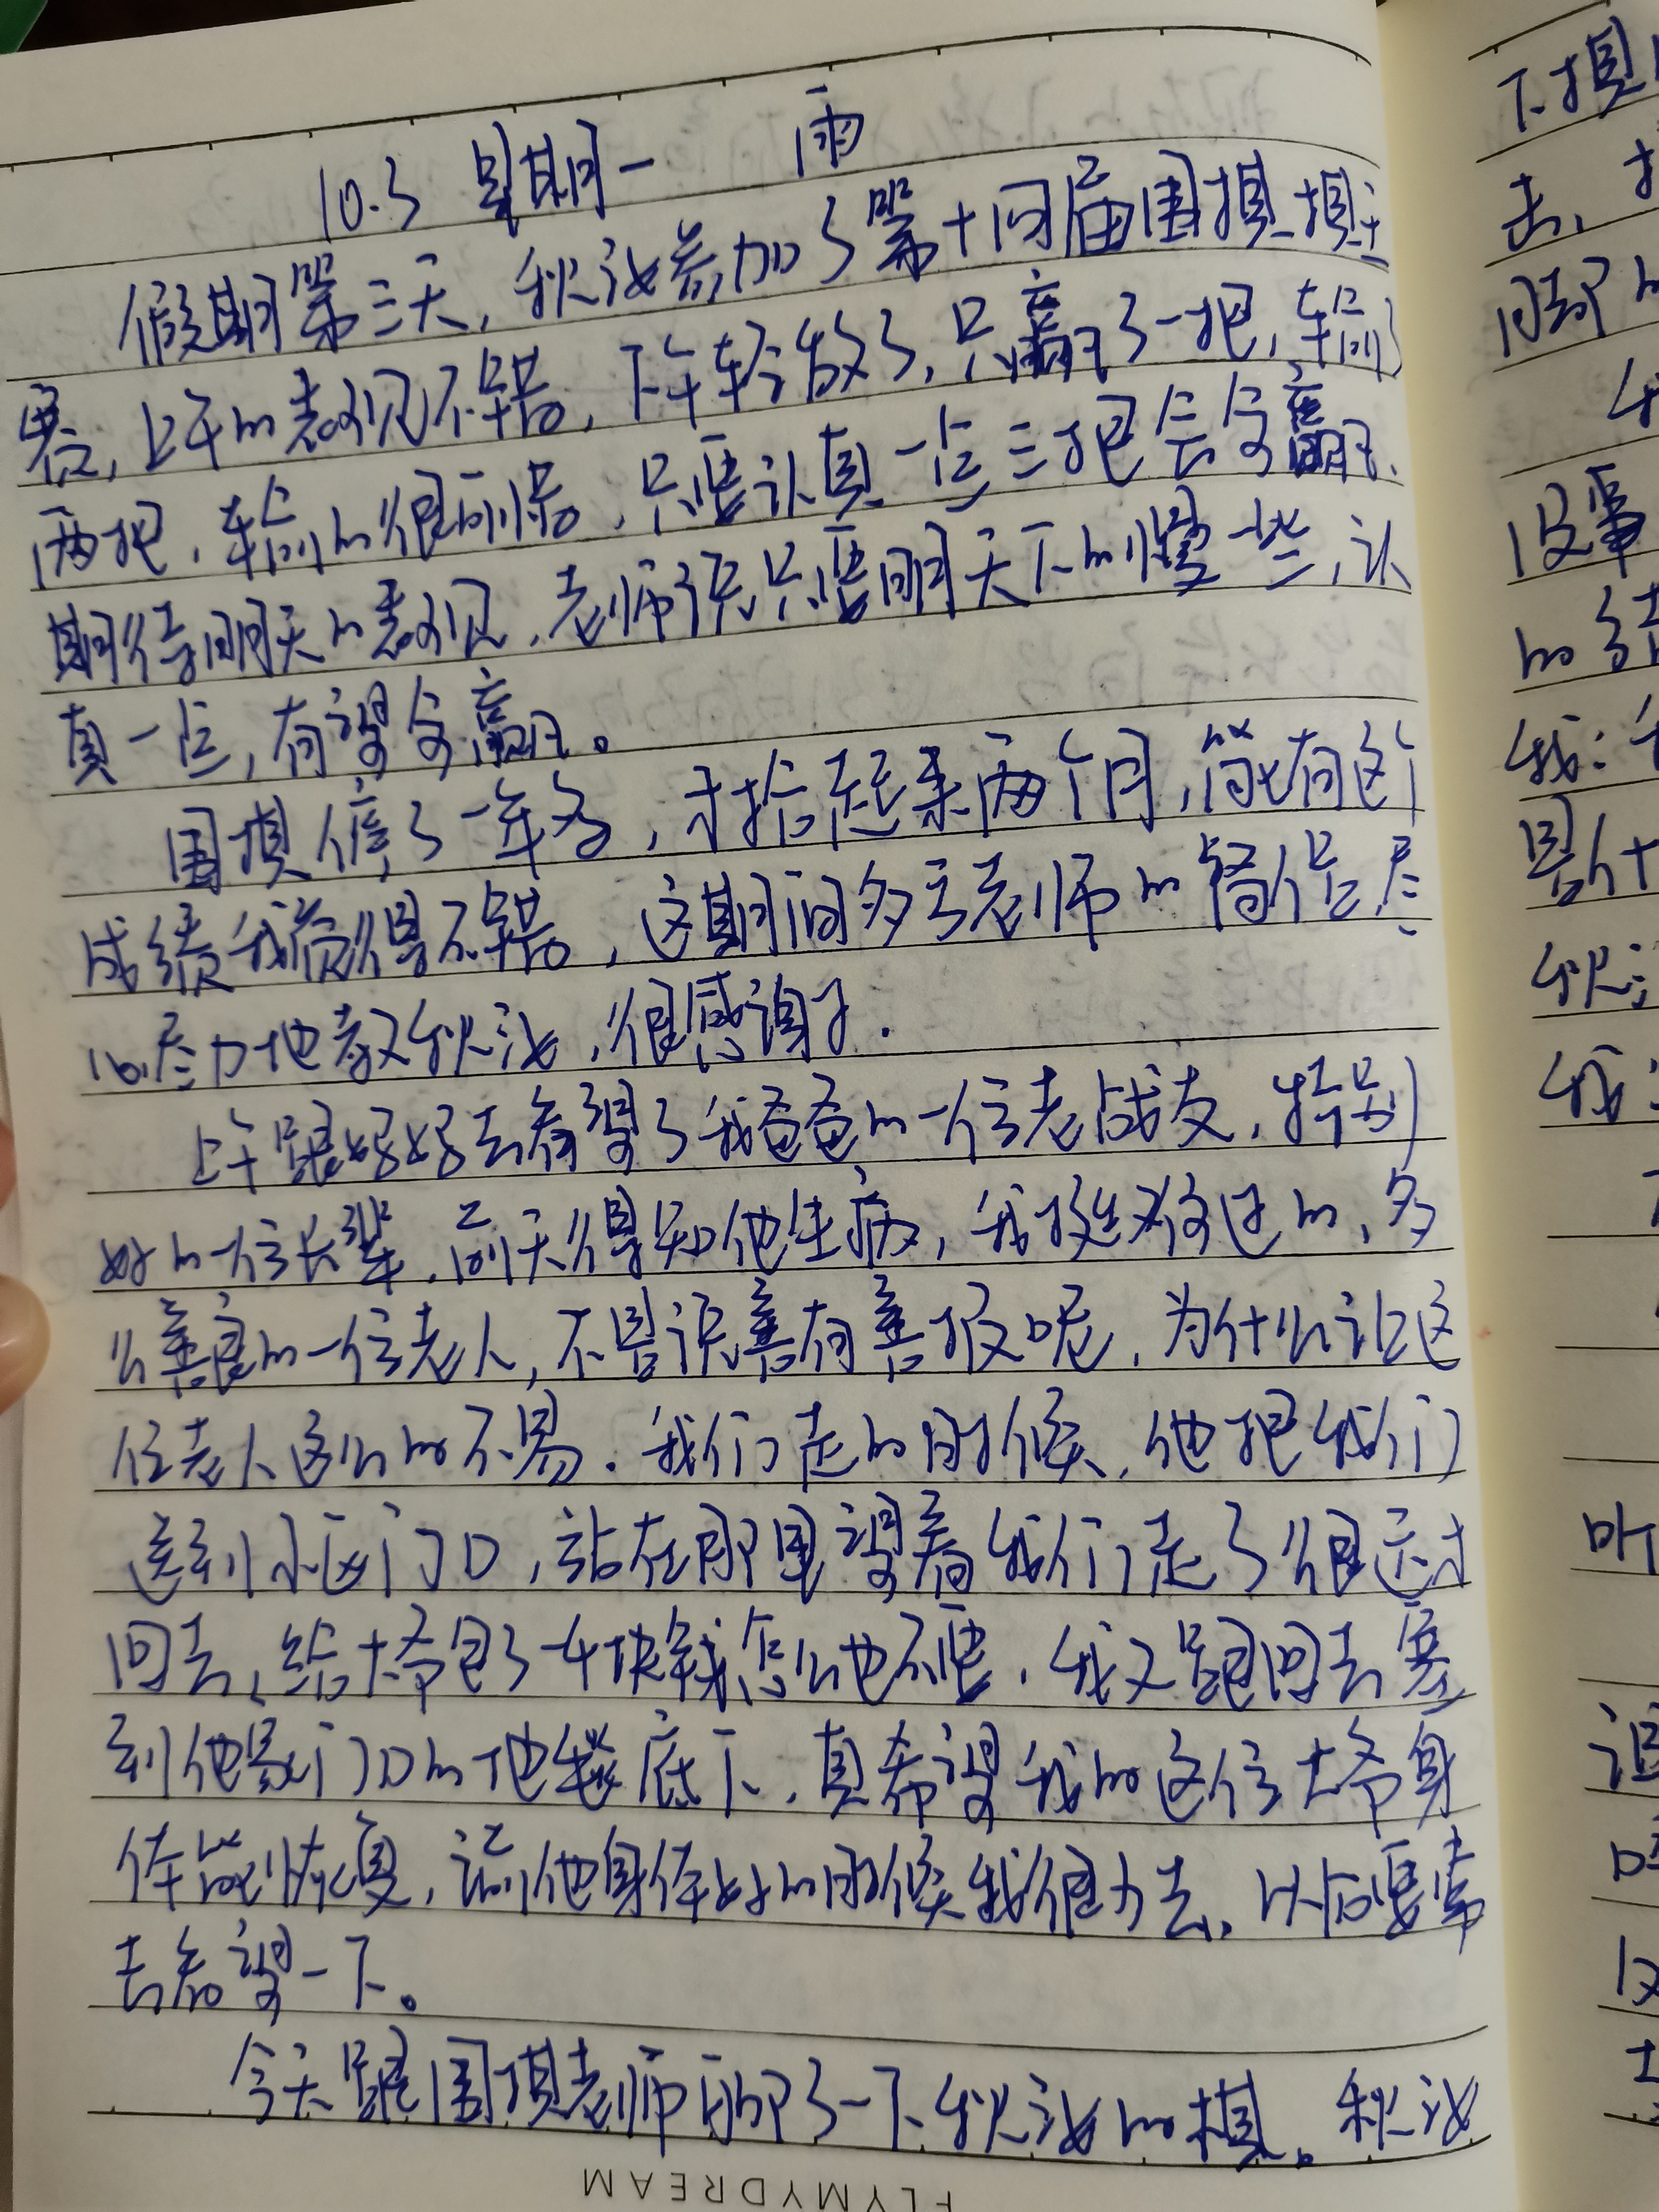 10.3 星期一 雨
假期第三天,秋泓参加了第十四届围棋棋王
赛,上午的表现不错,下午轻敌了,只赢了一把,输了
两把,输的很可惜,只要认真一点三把会全赢,
期待明天的表现,老师说只要明天下的慢一些,认
真一点,有望全赢。
围棋停了一年多,才拾起来两个月,能有这个
成绩我觉得不错,这期间多亏老师的督促,尽
心尽力地教秋泓,很感谢了.
上午跟妈妈去看望了我爸爸的一位老战友,特别
好的一位长辈,前天得知他生病,我挺难过的,多
么善良的一位老人,不是说善有善报呢,为什么让这
位老人这么的不易.我们走的时候,他把我们
送到小区门口,站在那里望着我们走了很远才
回去,给大爷包了一千块钱怎么也不要,我又跑回去塞
到他家门口的地毯底下,真希望我的这位大爷身
体能恢复,前他身体好的时候我很少去,以后要常
去看望一下。
今天跟围棋老师聊了一下秋泓的棋。秋泓
FLYMYDREAM
不棋
去,
回
没事
的
我:
是什
秋泓
我:
听